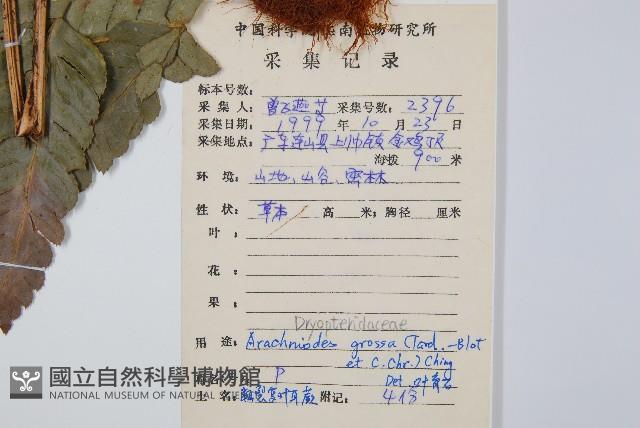 中国科学 南 物研究所
采集记录
标本号数:
采集人: 曾飞燕 采集号数: 2396
采集日期: 1999 年 10 月 23 日
采集地点: 广东连山县上帅镇金鸡顶
海拨 900 米
环境: 山地、山谷、密林
性状: 草本 高 米; 胸径 厘米
叶:
花:
果:
Dryopteridaceae
用途: Arachniodes grossa (Tard.-Blot
et C. Chr.) Ching
P Det.
土名: 复叶耳蕨 附记: 413
國立自然科學博物館
NATIONAL MUSEUM OF NATURAL